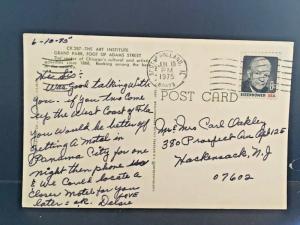 6-10-75
CK 287-THE ART INSTITUTE
GRAND PARK, FOOT OF ADAMS STREET
The center of Chicago's cultural and
Ranking among the
Was good talking with
you - if you two come
up the West Coast of Fla
you would be better off
getting a motel in
Panama City for one
night then phone
& we could locate a
closer motel for you
later = OK. Love
JUN 10
PM
1975
POST CARD
EISENHOWER USA
Mr & Mrs Carl Oakley
380 Prospect Ave Apt 125
Hackensack, N.J
07602